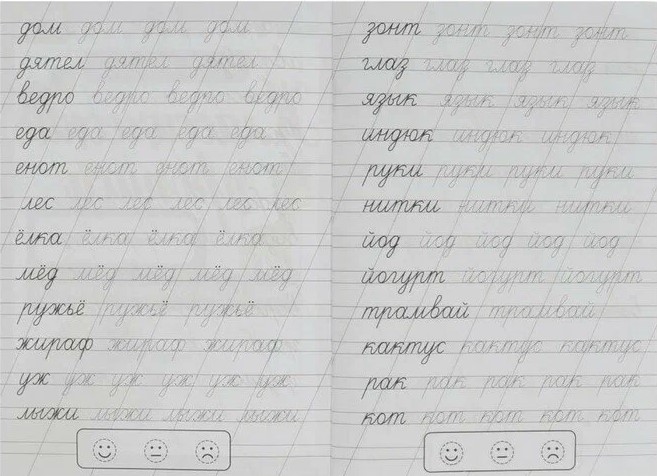 дом дом дом дом
дятел дятел дятел
ведро ведро ведро ведро
еда еда еда еда еда
енот енот енот енот
лес лес лес лес лес лес
ёлка ёлка ёлка ёлка
мёд мёд мёд мёд мёд
ружьё ружьё ружьё
жираф жираф жираф
уж уж уж уж уж уж
лыжи лыжи лыжи лыжи
зонт зонт зонт зонт
глаз глаз глаз глаз
язык язык язык язык
индюк индюк индюк
руки руки руки руки
нитки нитки нитки
йод йод йод йод йод
йогурт йогурт йогурт
трамвай трамвай
кактус кактус кактус
рак рак рак рак рак
кот кот кот кот кот